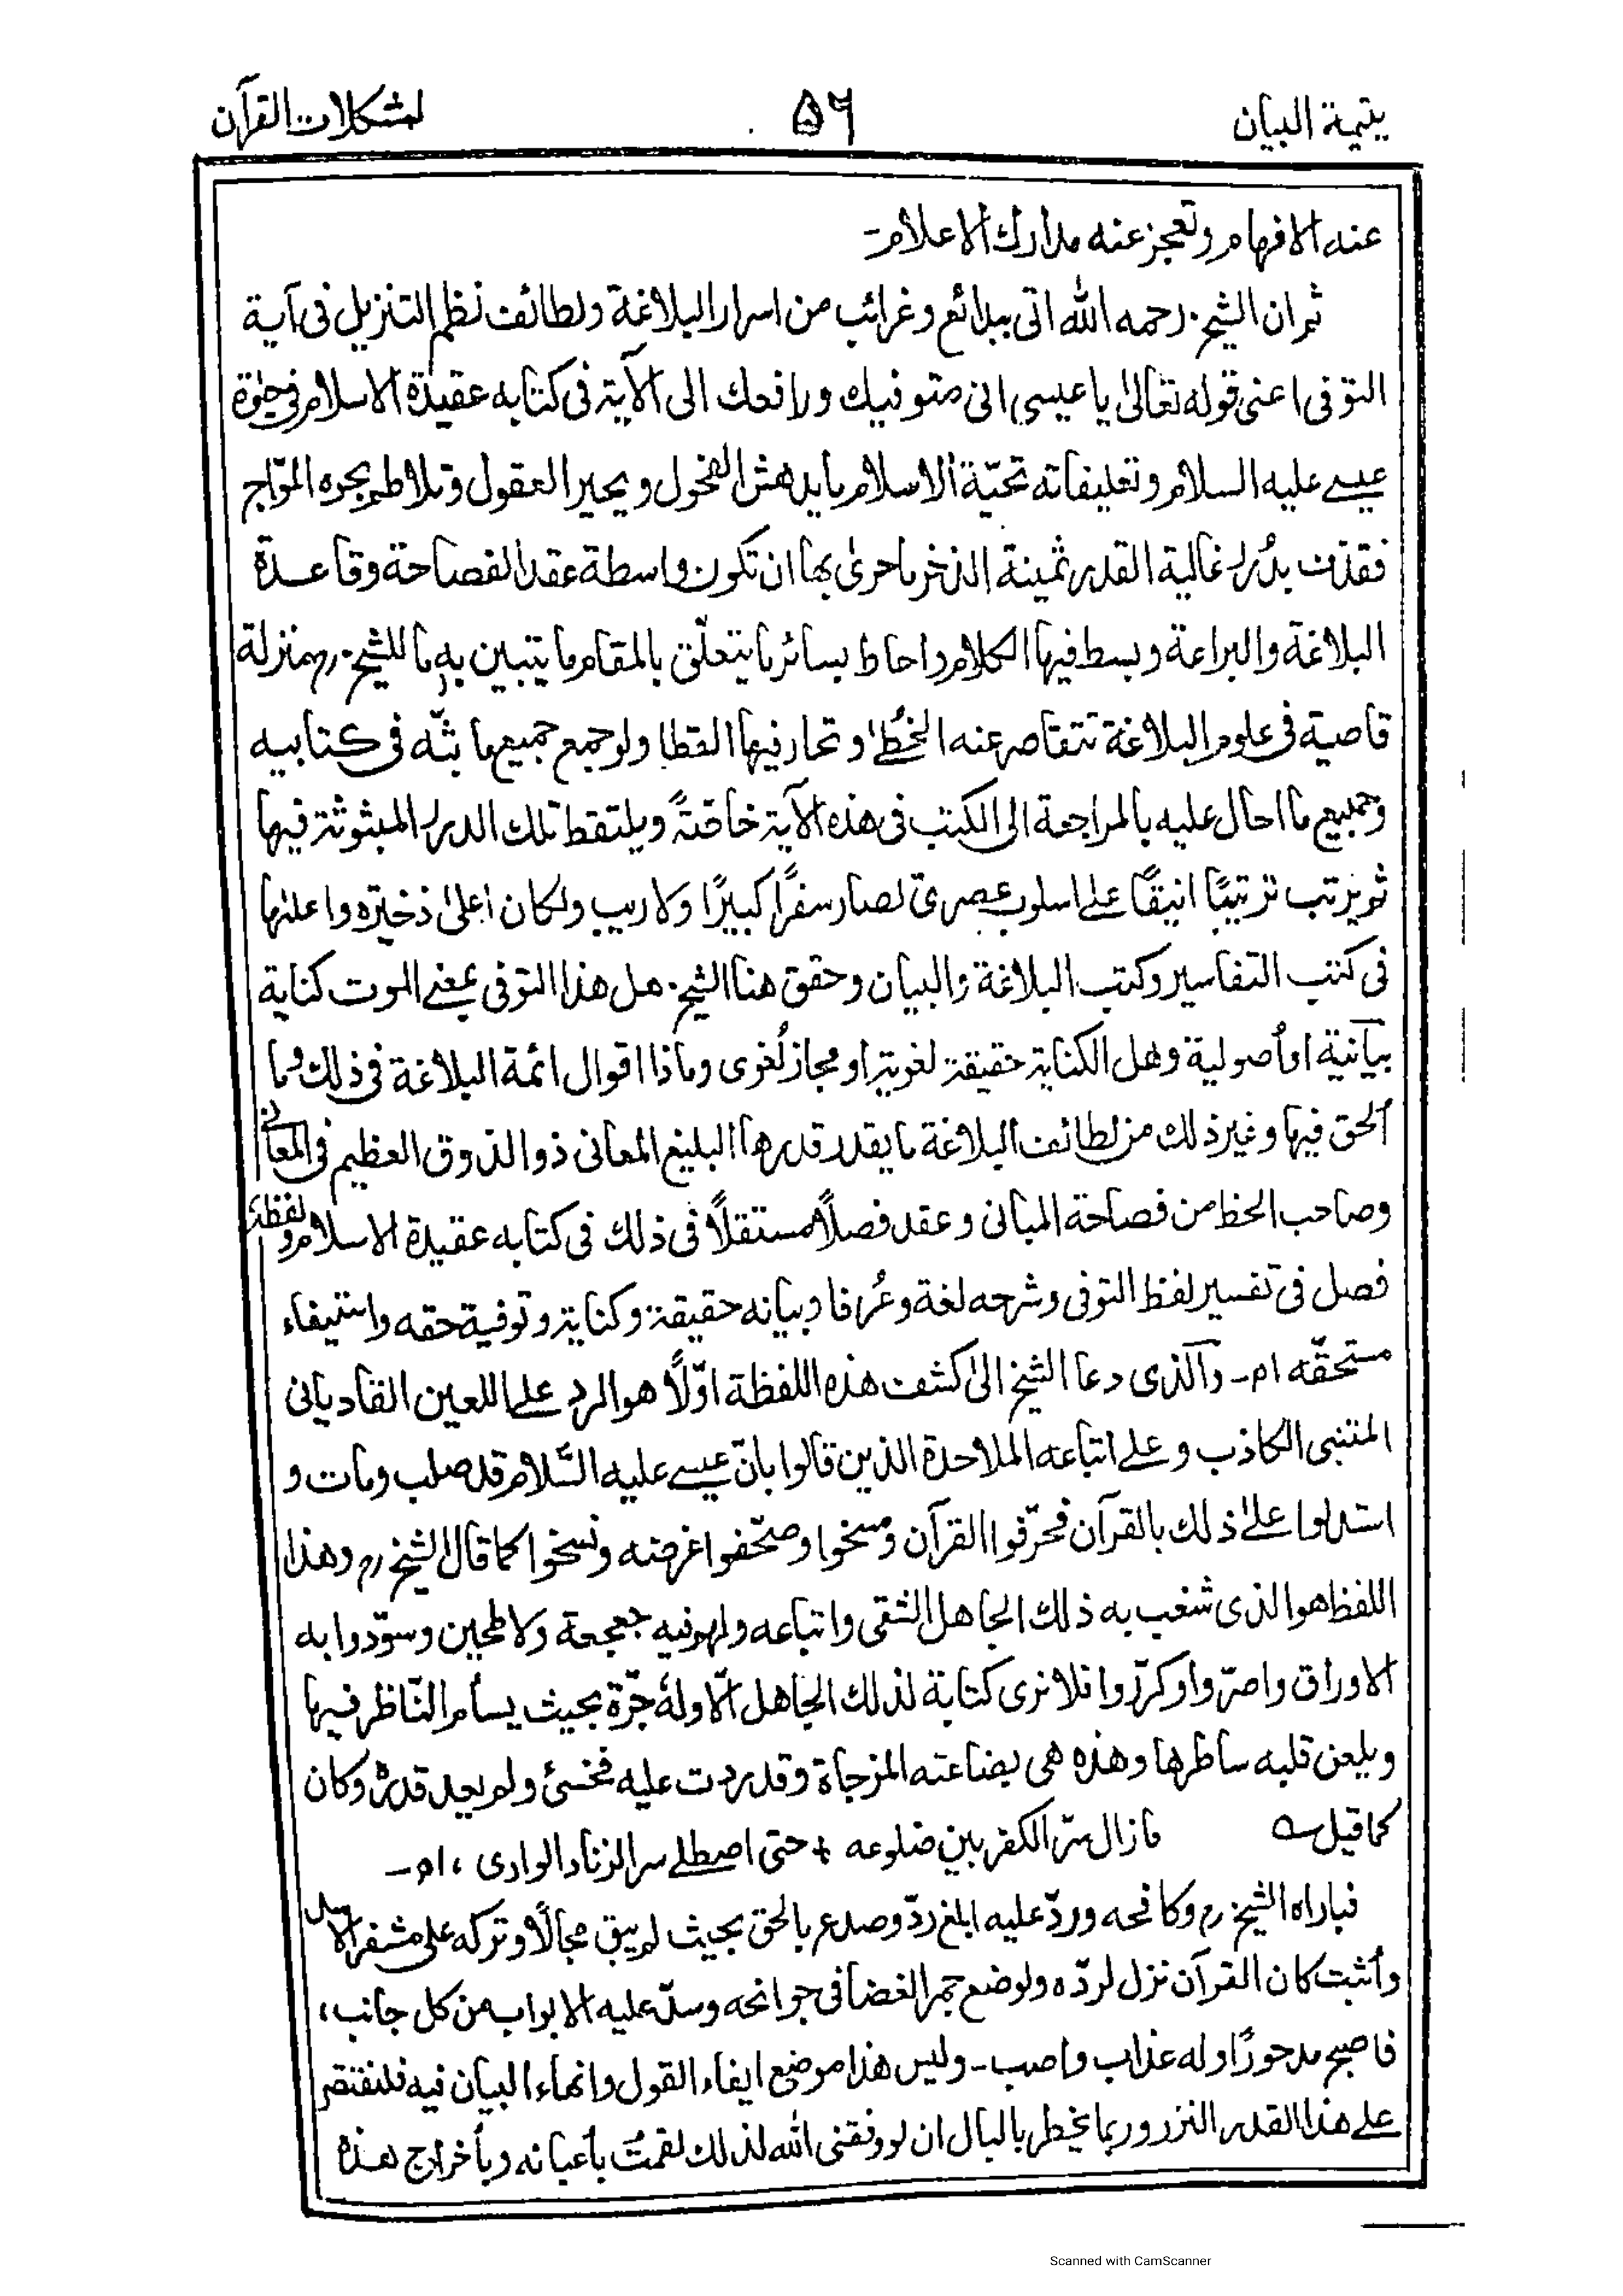 يتيمة البيان ٥٦ لمشكلات القرآن
عنه الافهام وتعجز عنه مدارك الاعلام-
ثم ان الشيخ رحمه الله اتى ببدائع وغرائب من اسرار البلاغة ولطائف نظم التنزيل فى آية
التوفى اعنى قوله تعالىٰ يا عيسى انى متوفيك ورافعك الى الآية فى كتابه عقيدة الاسلام فى حيٰوة
عيسے عليه السلام وتعليقاته تحيّة الاسلام ما يدهش الفحول ويحير العقول وتلاطم بحره الموّاج
فقذفت بدُرر غالية القدر ثمينة الذخر ما حرىٰ بها ان تكون واسطة عقد الفصاحة وقاعدة
البلاغة والبراعة وبسط فيها الكلام واحاط بسائر ما يتعلّق بالمقام ما يتبين به ما للشيخ رح منزلة
قاصية فى علوم البلاغة تتقاصر عنه الخُطا وتحار فيها القطا ولو جمع جميع ما بثّه فى كتابيه
وجميع ما احال عليه بالمراجعة الى الكتب فى هذه الآية خاصةً ويلتقط تلك الدرر المبثوثة فيها
ثم يرتب ترتيبًا انيقًا علے اسلوب عصرى لصار سفرًا كبيرًا ولا ريب ولكان اعلىٰ ذخيرة واعلنها
فى كتب التفاسير وكتب البلاغة والبيان وحقق هنا الشيخ هل هذا التوفى بمعنے الموت كناية
بيانية او أصولية وهل الكناية حقيقة لغوية او مجاز لُغوى وماذا اقوال ائمة البلاغة فى ذلك وما
الحق فيها وغير ذلك من لطائف البلاغة ما يقدر قدرها البليغ المعانى ذو الذوق العظيم فى المعانى
وصاحب الحظ من فصاحة المبانى وعقد فصلًا مستقلًا فى ذلك فى كتابه عقيدة الاسلام ولفظه
فصل فى تفسير لفظ التوفى وشرحه لغة وعُرفا وبيانه حقيقة وكناية وتوفية حقه واستيفاء
مستحقّه اه- والذى دعا الشيخ الىٰ كشف هذه اللفظة اوّلًا هو الرد علے اللعين القاديانى
المتنبى الكاذب وعلے اتباعه الملاحدة الذين قالوا بانّ عيسے عليه السّلام قد صلب ومات و
استدلوا علىٰ ذلك بالقرآن فحرّفوا القرآن ومسخوا وصحّفوا غرضه ونسخوا كما قال الشيخ رح وهذا
اللفظ هو الذى شغب به ذلك الجاهل الشقى واتباعه ولهم فيه جعجعة ولا طحين وسوّدوا به
الاوراق واصرّوا وكرّروا فلا نرى كتابة لذلك الجاهل الّا وله جرّة بحيث يسأم النّاظر فيها
ويلعن قلبه ساطرها وهذه هى بضاعته المزجاة وقد ردت عليه فخسئ ولم يعد قدره وكان
كما قيل ؎ ما زال سرّ الكفر بين ضلوعه + حتى اصطلے سر الزناد الوارى، اه-
فباراه الشيخ رح وكافحه وردّ عليه ابلغ ردّ وصدع بالحق بحيث لم يبق مجالًا وتركه على مشفر الاسد
وأثبت كان القرآن نزل لردّه ولوضع جمر الغضا فى جوانحه وسدّ عليه الابواب من كل جانب،
فاصبح مدحورًا وله عذاب واصب- وليس هذا موضع ايفاء القول وانهاء البيان فيه فلنقتصر
علے هذا القدر النزر وربما يخطر بالبال ان لو وفقنى الله لذلك لقمتُ بأعبائه وبأخراج هذه
Scanned with CamScanner